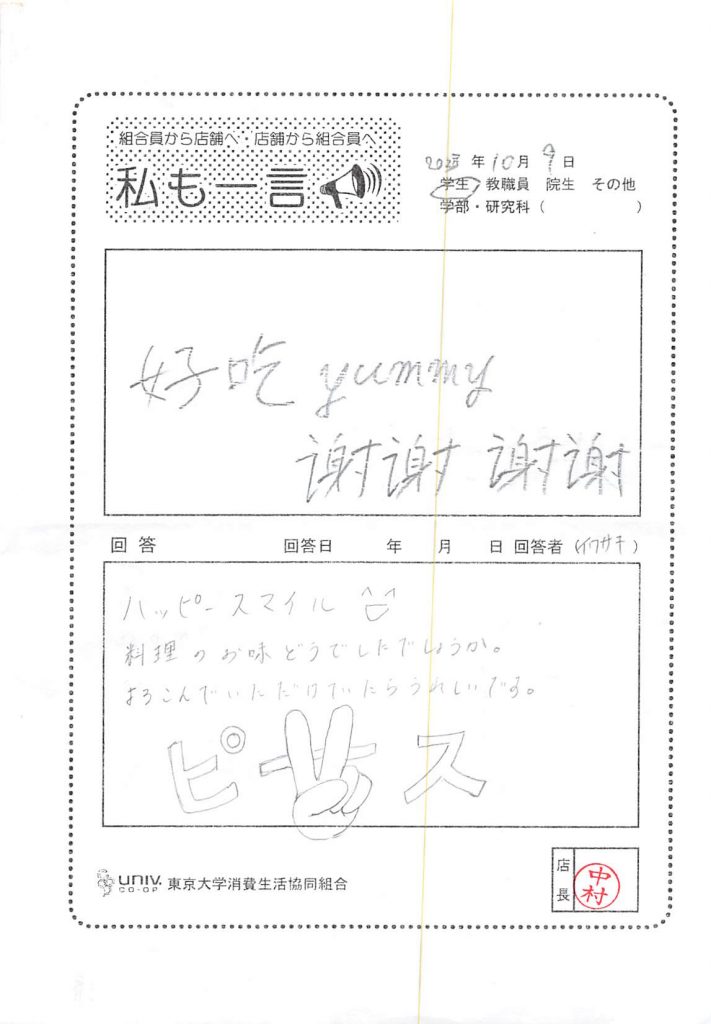 組合員から店舗へ・店舗から組合員へ
私も一言
2023年10月9日
学生 教職員 院生 その他
学部・研究科（　　　）
好吃 yummy
谢谢 谢谢
回答 回答日 年 月 日 回答者（イワサキ）
ハッピースマイル
料理のお味どうでしたでしょうか。
よろこんでいただけていたらうれしいです。
ピース
UNIV. CO-OP 東京大学消費生活協同組合
店長 中村